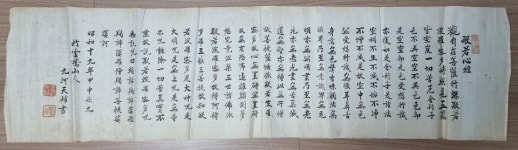 般若心経
觀自在菩薩行深般若
波羅蜜多時照見五蘊
皆空度一切苦厄舍利子
色不異空空不異色色即
是空空即是色受想行識
亦復如是舍利子是諸法
空相不生不滅不垢不淨
不增不減是故空中無色
無受想行識無眼耳鼻舌
身意無色聲香味觸法無
眼界乃至無意識界無無
明亦無無明盡乃至無老
死亦無老死盡無苦集滅
道無智亦無得以無所得
故菩提薩埵依般若波羅
蜜多故心無罣礙無罣礙
故無有恐怖遠離顛倒夢
想究竟涅槃三世諸佛依
般若波羅蜜多故得阿耨
多羅三藐三菩提故知般
若波羅蜜多是大神咒是
大明咒是無上咒是無等
等咒能除一切苦真實不
虛故說般若波羅蜜多咒
即說咒曰揭諦揭諦波羅
揭諦波羅僧揭諦菩提薩
婆訶
昭和十九年甲申
山人
書